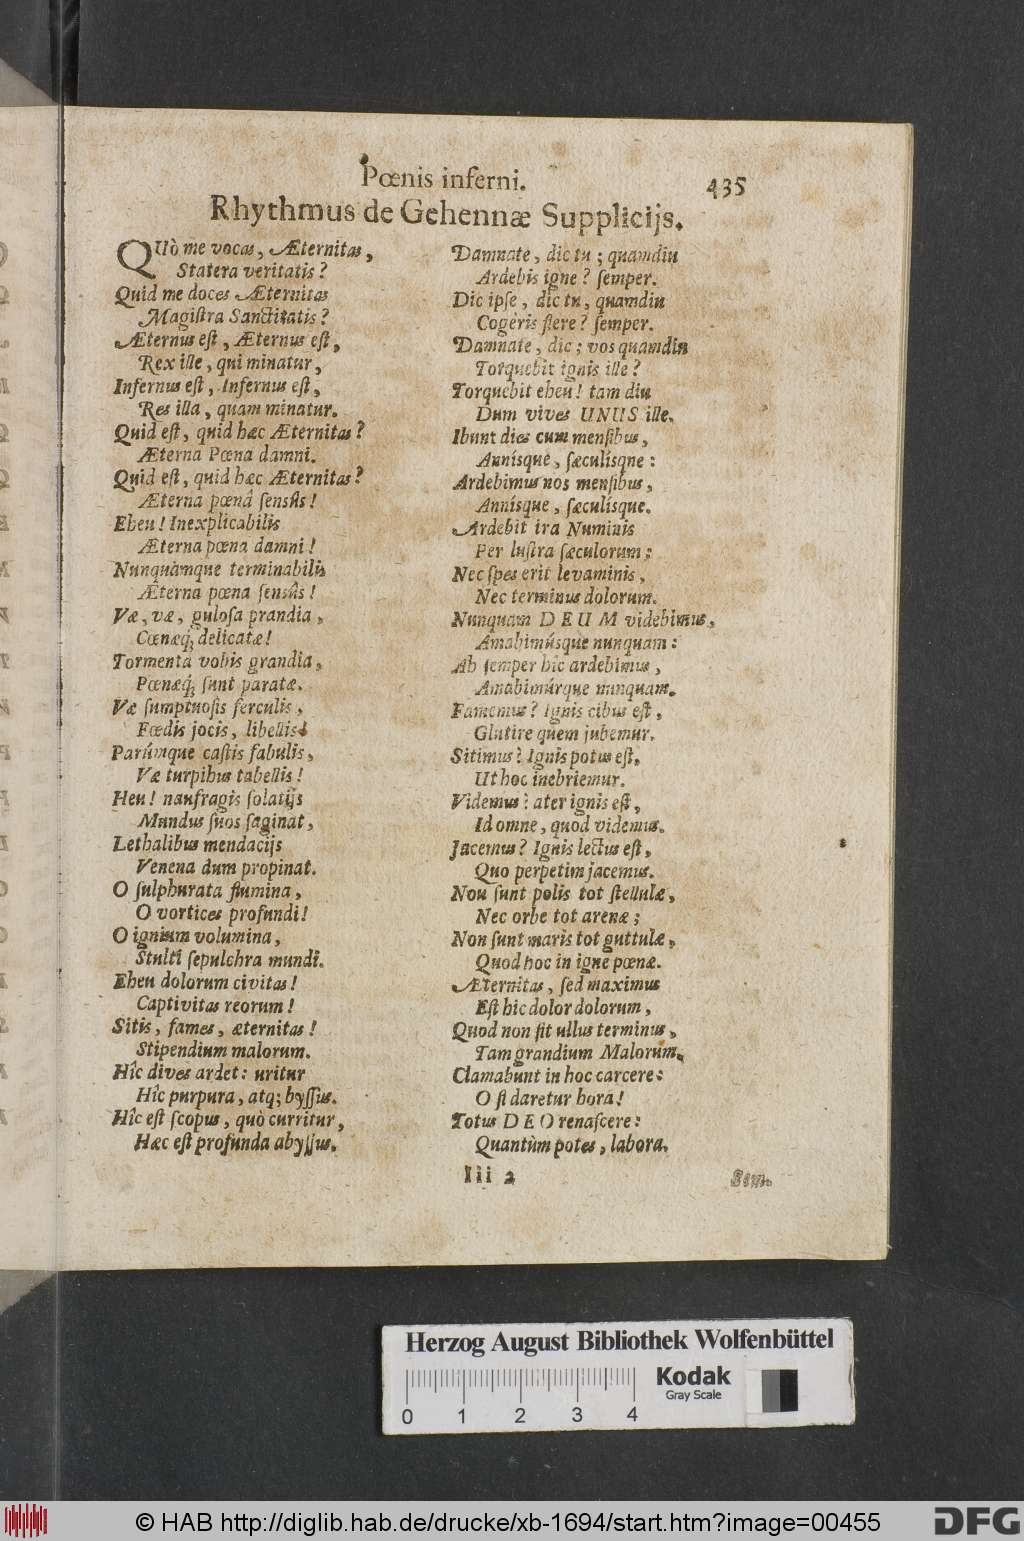 Pœnis inferni.
435
Rhythmus de Gehennæ Supplicijs.
QUò me vocas, Æternitas,
Statera veritatis?
Quid me doces Æternitas
Magiſtra Sanctitatis?
Æternus eſt, Æternus eſt,
Rex ille, qui minatur,
Infernus eſt, Infernus eſt,
Res illa, quam minatur.
Quid eſt, quid hæc Æternitas?
Æterna Pœna damni.
Quid eſt, quid hæc Æternitas?
Æterna pœnâ ſensûs!
Eheu! Inexplicabilis
Æterna pœna damni!
Nunquàmque terminabilis
Æterna pœna ſensûs!
Væ, væ, guloſa prandia,
Cœnæq́; delicatæ!
Tormenta vobis grandia,
Pœnæq́; ſunt paratæ.
Væ ſumptuoſis ferculis,
Fœdis jocis, libellis!
Parúmque caſtis fabulis,
Væ turpibus tabellis!
Heu! naufragis ſolatijs
Mundus ſuos ſaginat,
Lethalibus mendacijs
Venena dum propinat.
O ſulphurata flumina,
O vortices profundi!
O ignium volumina,
Stultî ſepulchra mundi.
Eheu dolorum civitas!
Captivitas reorum!
Sitis, fames, æternitas!
Stipendium malorum.
Hîc dives ardet: uritur
Hîc purpura, atq; byſſus.
Hîc eſt ſcopus, quò curritur,
Hæc eſt profunda abyſſus.
Damnate, dic tu; quamdiu
Ardebis igne? ſemper.
Dic ipſe, dic tu, quamdiu
Cogêris flere? ſemper.
Damnate, dic; vos quamdiu
Torquebit ignis ille?
Torquebit eheu! tam diu
Dum vives UNUS ille.
Ibunt dies cum menſibus,
Annísque, ſæculísque:
Ardebimus nos menſibus,
Annísque, ſæculísque.
Ardebit ira Numinis
Per luſtra ſæculorum:
Nec ſpes erit levaminis,
Nec terminus dolorum.
Nunquam DEUM videbimus,
Amabimúsque nunquam:
Ah ſemper hîc ardebimus,
Amabimúrque nunquam.
Famemus? Ignis cibus eſt,
Glutire quem jubemur.
Sitimus? Ignis potus eſt,
Ut hoc inebriemur.
Videmus? ater ignis eſt,
Id omne, quod videmus.
Jacemus? Ignis lectus eſt,
Quo perpetim jacemus.
Non ſunt polis tot ſtellulæ,
Nec orbe tot arenæ;
Non ſunt maris tot guttulæ,
Quod hoc in igne pœnæ.
Æternitas, ſed maximus
Eſt hic dolor dolorum,
Quod non ſit ullus terminus,
Tam grandium Malorum.
Clamabunt in hoc carcere:
O ſi daretur hora!
Totus DEO renaſcere:
Quantùm potes, labora.
Iii 2
Sem-
Herzog August Bibliothek Wolfenbüttel
Kodak
Gray Scale
0 1 2 3 4
© HAB http://diglib.hab.de/drucke/xb-1694/start.htm?image=00455
DFG